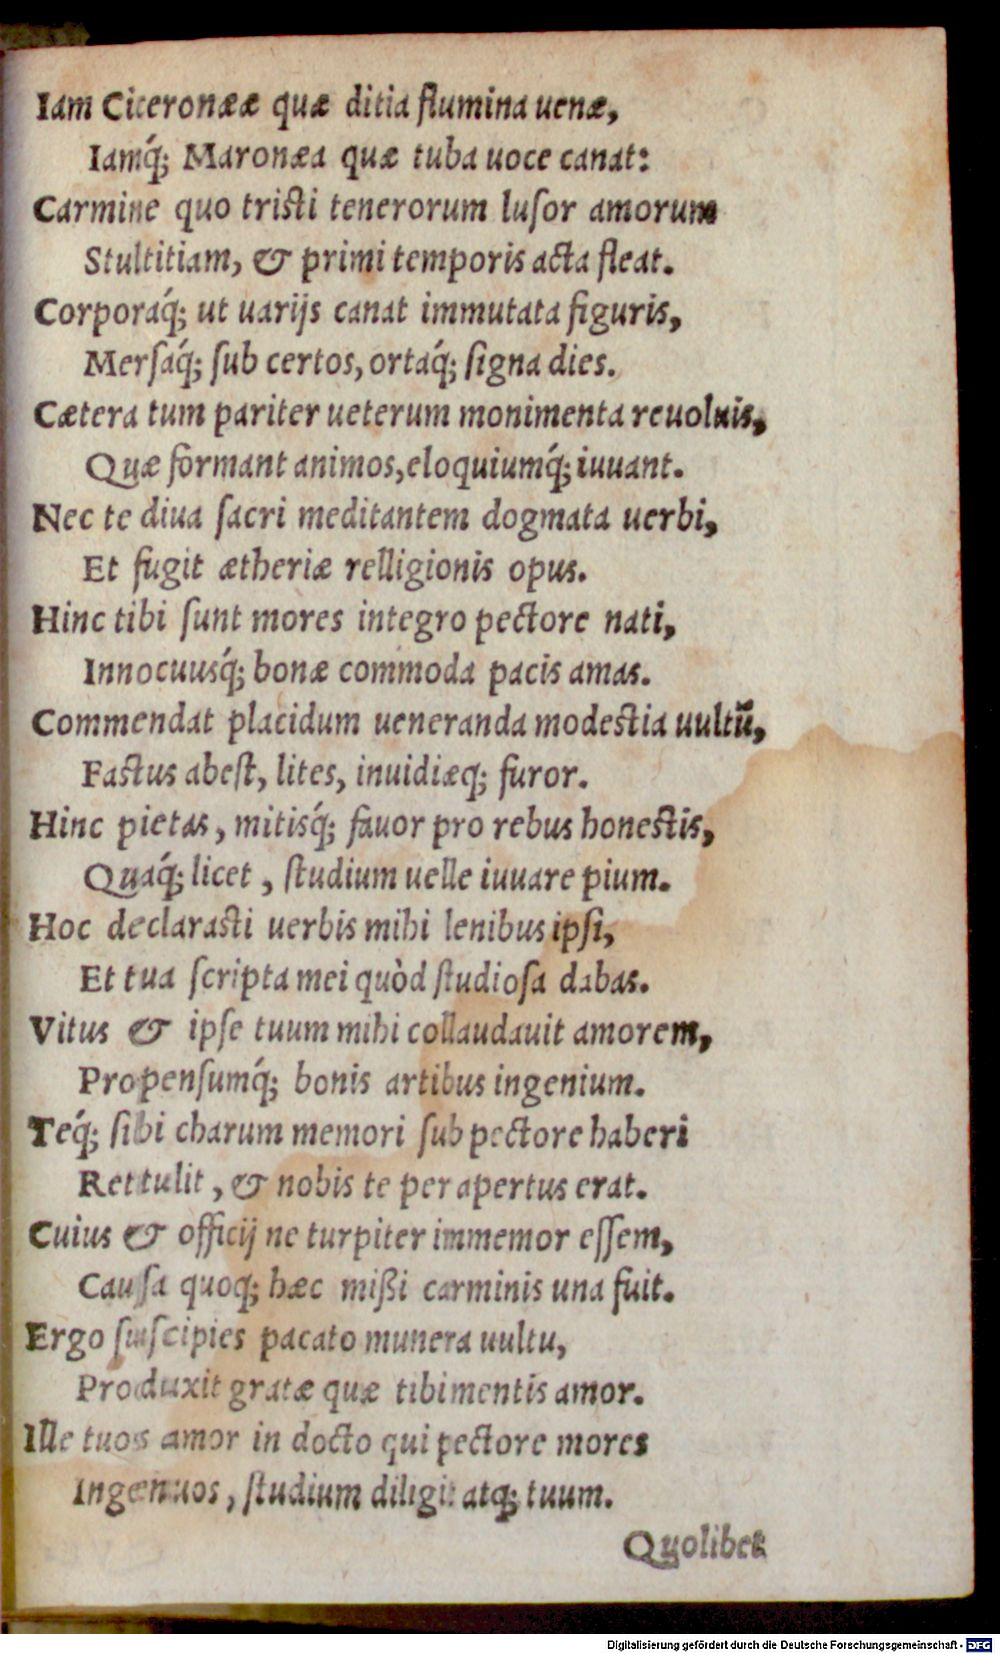 Iam Ciceronææ quæ ditia flumina uenæ,
Iamq́; Maronæa quæ tuba uoce canat:
Carmine quo tristi tenerorum luſor amorum
Stultitiam, & primi temporis acta fleat.
Corporáq; ut uarijs canat immutata figuris,
Merſáq; ſub certos, ortáq; ſigna dies.
Cætera tum pariter ueterum monimenta reuoluis,
Quæ formant animos, eloquiumq́; iuuant.
Nec te diua ſacri meditantem dogmata uerbi,
Et fugit ætheriæ relligionis opus.
Hinc tibi ſunt mores integro pectore nati,
Innocuusq́; bonæ commoda pacis amas.
Commendat placidum ueneranda modestia uultū,
Fastus abeſt, lites, inuidiæq; furor.
Hinc pietas, mitisq́; fauor pro rebus honestis,
Quáq; licet, ſtudium uelle iuuare pium.
Hoc declarasti uerbis mihi lenibus ipſi,
Et tua ſcripta mei quòd ſtudioſa dabas.
Vitus & ipſe tuum mihi collaudauit amorem,
Propenſumq́; bonis artibus ingenium.
Téq; ſibi charum memori ſub pectore haberi
Rettulit, & nobis te per apertus erat.
Cuius & officij ne turpiter immemor eſſem,
Cauſſa quoq; hæc mißi carminis una fuit.
Ergo ſuſcipies pacato munera uultu,
Produxit gratæ quæ tibi mentis amor.
Ille tuos amor in docto qui pectore mores
Ingenuos, ſtudium diligit atq; tuum.
Quolibet
Digitalisierung gefördert durch die Deutsche Forschungsgemeinschaft - DFG